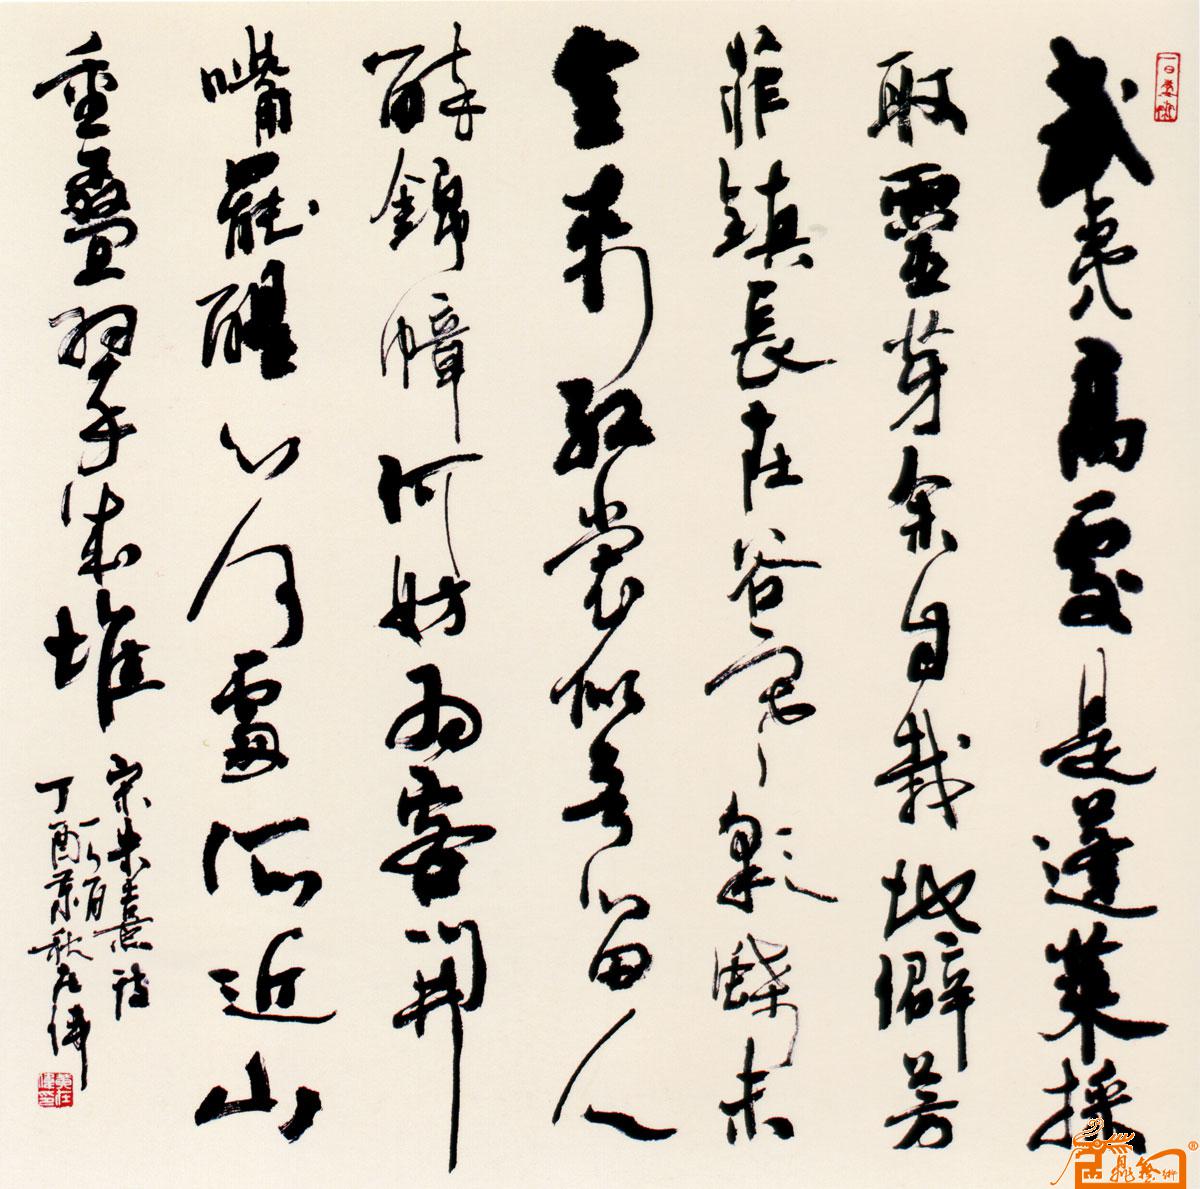 武夷高處是蓬萊採
取靈芽余自栽地僻芳
菲鎮長在谷寒彩蝶未
全來紅裳似欲留人
醉錦幛何妨為客開
嘴罷醒心何處所近山
重疊翠成堆
宋朱熹诗
丁酉